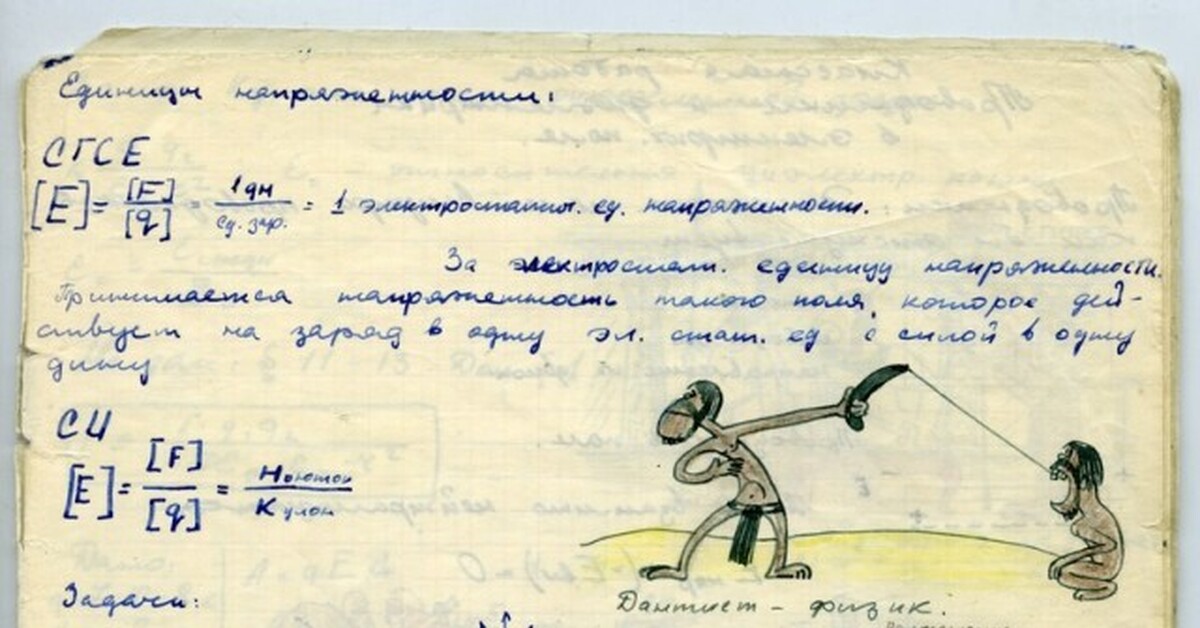 Единицы напряженности:
СГСЕ
[E] = [F]/[q] = 1 дн/ед. зар. = 1 электростатич. ед. напряженности.
За электростат. единицу напряженности
принимается напряженность такого поля, которое дей-
ствует на заряд в одну эл. стат. ед с силой в одну
дину
СИ
[E] = [F]/[q] = Ньютон/Кулон
Задачи:
Дантист - физик.